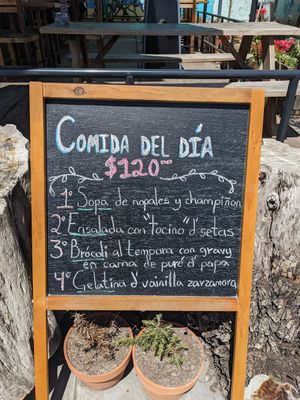 COMIDA DEL DÍA
$120.00
1° Sopa de nopales y champiñon
2° Ensalada con "tocino" d' setas
3° Brócoli al tempura con gravy
en cama de puré d' papa
4° Gelatina d' vainilla zarzamora